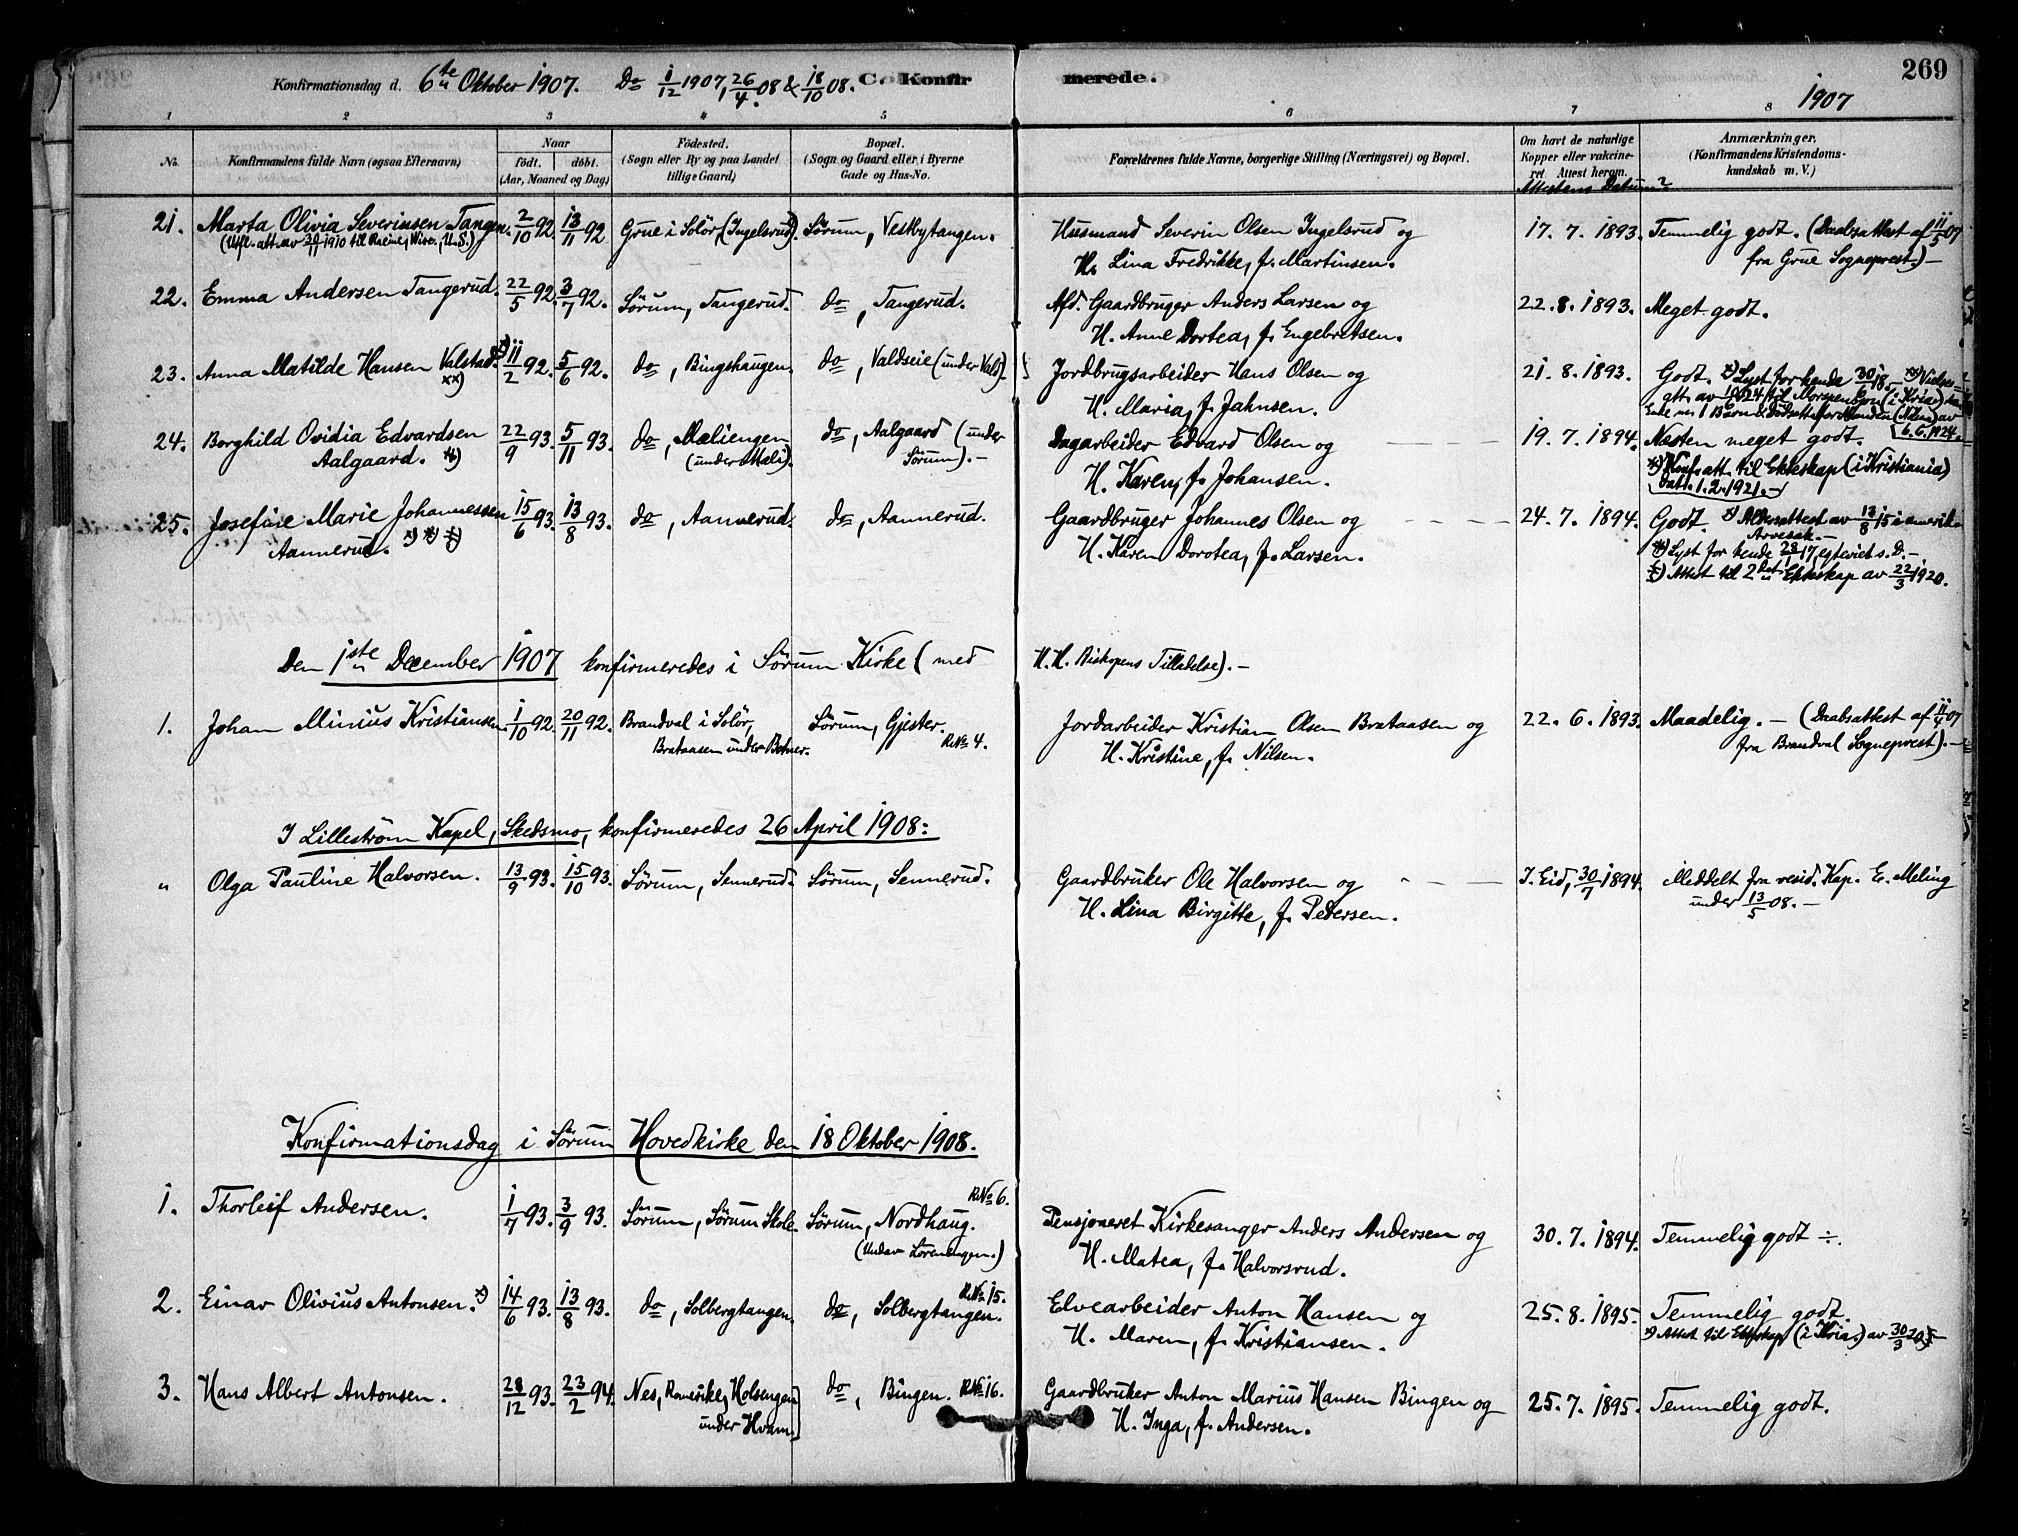 269
Konfirmationsdag d. 6te Oktober 1907. Do 1/12 1907, 26/4 08 & 18/10 08. C. Konfirmerede.
1907
1 2 3 4 5 6 7 8
No. Konfirmandens fulde Navn (ogsaa Efternavn) Naar født. døbt. (Aar, Maaned og Dag) Fødested. (Sogn eller By og paa Landet tillige Gaard) Bopæl. (Sogn og Gaard eller i Byerne Gade og Hus-No. Forældrenes fulde Navne, borgerlige Stilling (Næringsvei) og Bopæl. Om havt de naturlige Kopper eller vakcineret. Attest herom. Anmærkninger. (Konfirmandens Kristendomskundskab m. V.)
Attestens Datum?
21. Marta Olivia Severinsen Tangen. 2/10 92. 13/11 92 Grue i Solör (Ingelsrud). Sørum, Vestbytangen. Husmand Severin Olsen Ingelsrud og 17. 7. 1893. Temmelig godt. (Daabsattest af 11/5 07
(Utfl. att. av 1910 til Racine, Wisc. (U.S.) H. Lina Fredrikke, f. Martinsen. fra Grue Sogneprest.) —
22. Emma Andersen Tangerud. 22/5 92. 3/7 92. Sørum, Tangerud. do, Tangerud. Afd. Gaardbruger Anders Larsen og 22. 8. 1893. Meget godt.
H. Anne Dortea, f. Engebretsen.
23. Anna Matilde Hansen Valstad. x) 11/2 92. 5/6 92. do, Bingshaugen. do, Valdseie (under Vals). Jordbrugsarbeider Hans Olsen og 21. 8. 1893. Godt. x) Lyst for hende 30/6 18. —
xx) H. Maria, f. Jahnsen.
6.6.1924.
24. Borghild Ovidia Edvardsen 22/9 93. 5/11 93. do, Mæliengen do, Aalgaard (under Dagarbeider Edvard Olsen og 19. 7. 1894. Næsten meget godt.
Aalgaard. *) (under Mæli). Sørum). — H. Karen, f. Johansen. *) Konf. att. til Ekteskap (i Kristiania)
dat. 1. 2. 1921. —
25. Josefine Marie Johannessen 15/6 93. 13/8 93. do, Aannerud. do, Aannerud. Gaardbruger Johannes Olsen og 24. 7. 1894. Godt. x) Aldersattest av 13/8 15 i amerik.
Aannerud. H. Karen Dorotea, f. Larsen. Arvesak. —
*) Lyst for hende 28/1 17, egteviet s. D. —
Attest til 2det Ekteskap av 22/3 1920.
Den 1ste December 1907 konfirmeredes i Sørum Kirke (med H. H. Biskopens Tilladelse). —
1. Johan Minius Kristiansen 1/10 92. 20/11 92. Brandval i Solör, Sørum, Gjester. Jordarbeider Kristian Olsen Brataasen og 22. 6. 1893. Maadelig. — (Daabsattest af 11/4 07
Brataasen under Botner. R. No 4. H. Kristine, f. Nilsen. fra Brandval Sogneprest). —
I Lillestrøm Kapel, Skedsmo, konfirmeredes 26 April 1908:
„ Olga Pauline Halvorsen. 13/9 93. 15/10 93. Sørum, Sennerud. Sørum, Sennerud. Gaardbruker Ole Halvorsen og I. Eid, 30/7 1894. Meddelt fra resid. Kap. E. Meling
H. Lina Birgitte, f. Pedersen. under 13/5 08. —
Konfirmationsdag i Sørum Hovedkirke den 18 Oktober 1908.
1. Thorleif Andersen. 1/7 93. 3/9 93. Sørum, Sørum Skole. Sørum, Nordhaug. R. No 6. Pensjoneret Kirkesanger Anders Andersen og 30. 7. 1894. Temmelig godt ÷.
(Under Sørenengen.) H. Matea, f. Halvorsrud.
2. Einar Olivius Antonsen. x) 14/6 93. 13/8 93. do, Solbergtangen. do, Solbergtangen. R. No 15. Elvearbeider Anton Hansen og 25. 8. 1895. Temmelig godt.
H. Maren, f. Kristiansen. x) Attest til Ekteskap (i Kria.) av 30/3 20. —
3. Hans Albert Antonsen. 28/12 93. 23/2 94. Nes, Romerike, Holsengen do, Bingen. R. No 16. Gaardbruker Anton Marius Hansen Bingen og 25. 7. 1895. Temmelig godt.
under Hvam. H. Inga, f. Andersen.